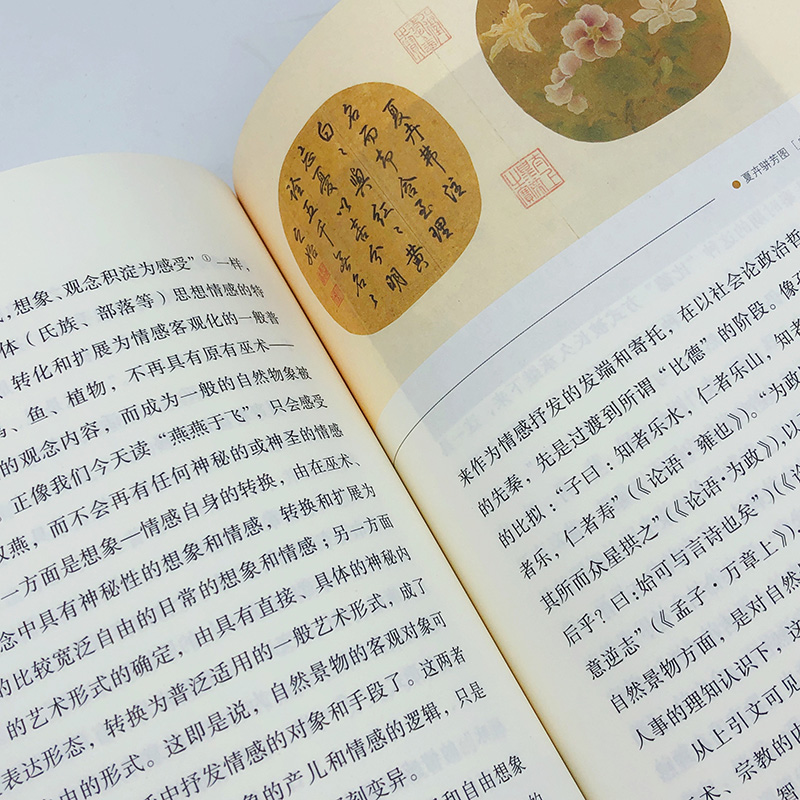 ，想象、观念积淀为感受”①一样，
体（氏族、部落等）思想情感的特
、转化和扩展为情感客观化的一般普
鸟、鱼、植物，不再具有原有巫术——
的观念内容，而成为一般的自然物象被
。正像我们今天读“燕燕于飞”，只会感受
双燕，而不会再有任何神秘的或神圣的情感
一方面是想象—情感自身的转换，由在巫术、
念中具有神秘性的想象和情感，转换和扩展为
的比较宽泛自由的日常的想象和情感；另一方面
的艺术形式的确定，由具有直接、具体的神秘内
表达形态，转换为普泛适用的一般艺术形式，成了
由中的形式。这即是说，自然景物的客观对象可
中抒发情感的对象和手段了。这两者
象的产儿和情感的逻辑，只是
刻变异。
和自由想象
夏卉骈芳图
来作为情感抒发的发端和寄托，在以社会论政治哲
的先秦，先是过渡到所谓“比德”的阶段。像
的比拟：“子曰：知者乐水，仁者乐山，知者
者乐，仁者寿”（《论语·雍也》）。“为政
其所而众星拱之”（《论语·为政》），以
后乎？曰：始可与言诗也矣”（《论
意逆志”（《孟子·万章上》），
自然景物方面，是对自然
人事的理知认识下，这
从上引文可见
术、宗教的内